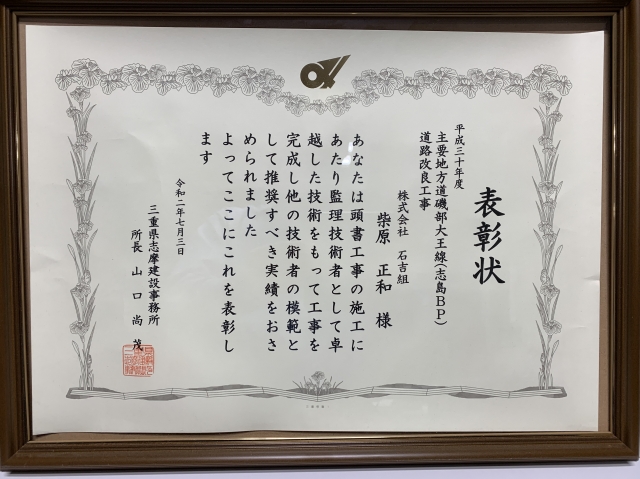 表彰状
平成三十年度
主要地方道磯部大王線（志島ＢＰ）
道路改良工事
株式会社 石吉組
柴原 正和 様
あなたは頭書工事の施工に
あたり監理技術者として卓
越した技術をもって工事を
完成し他の技術者の模範と
して推奨すべき実績をおさ
められました
よってここにこれを表彰し
ます
令和二年七月三日
三重県志摩建設事務所
所長 山口尚茂